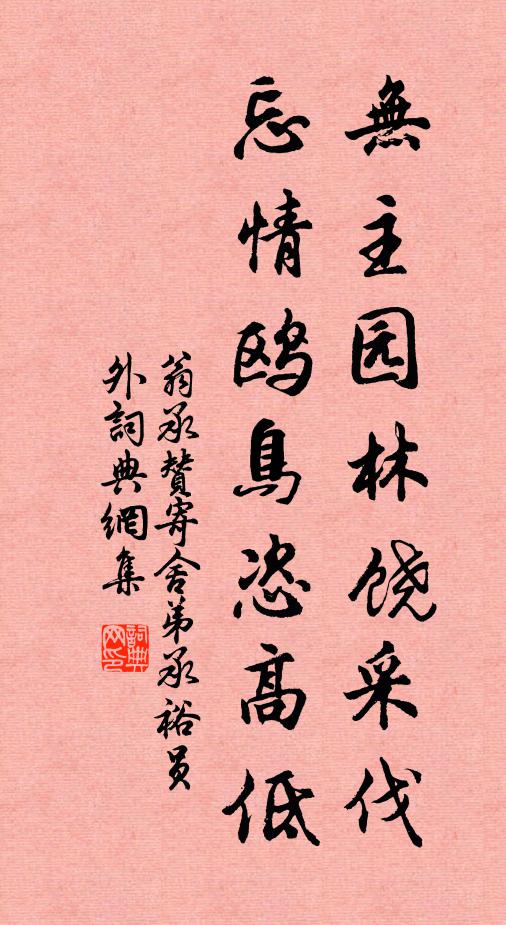 無主园林饶采伐
忘情鸥鳥恣高低
翁承贊寄舍弟承裕員
外詞典網集
詞典网印